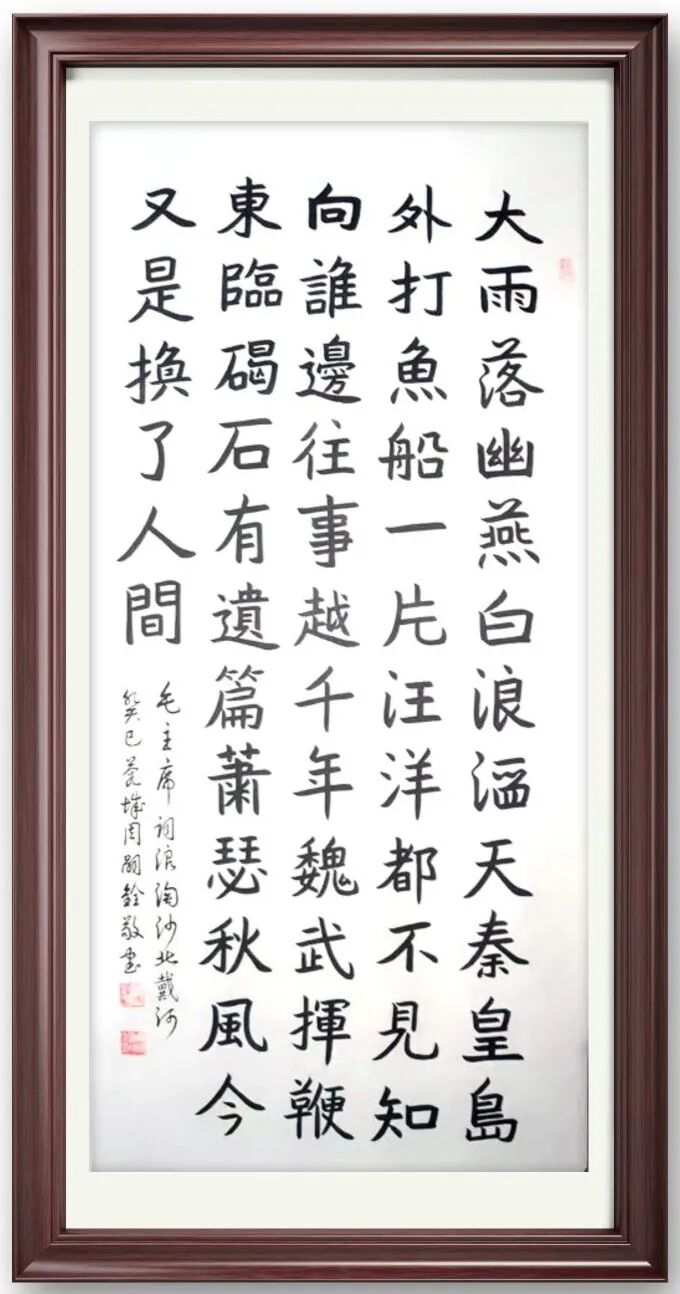 大雨落幽燕白浪滔天秦皇島
外打魚船一片汪洋都不見知
向誰邊往事越千年魏武揮鞭
東臨碣石有遺篇蕭瑟秋風今
又是換了人間
毛主席詞浪淘沙北戴河
癸巳莞城周嗣銓敬書